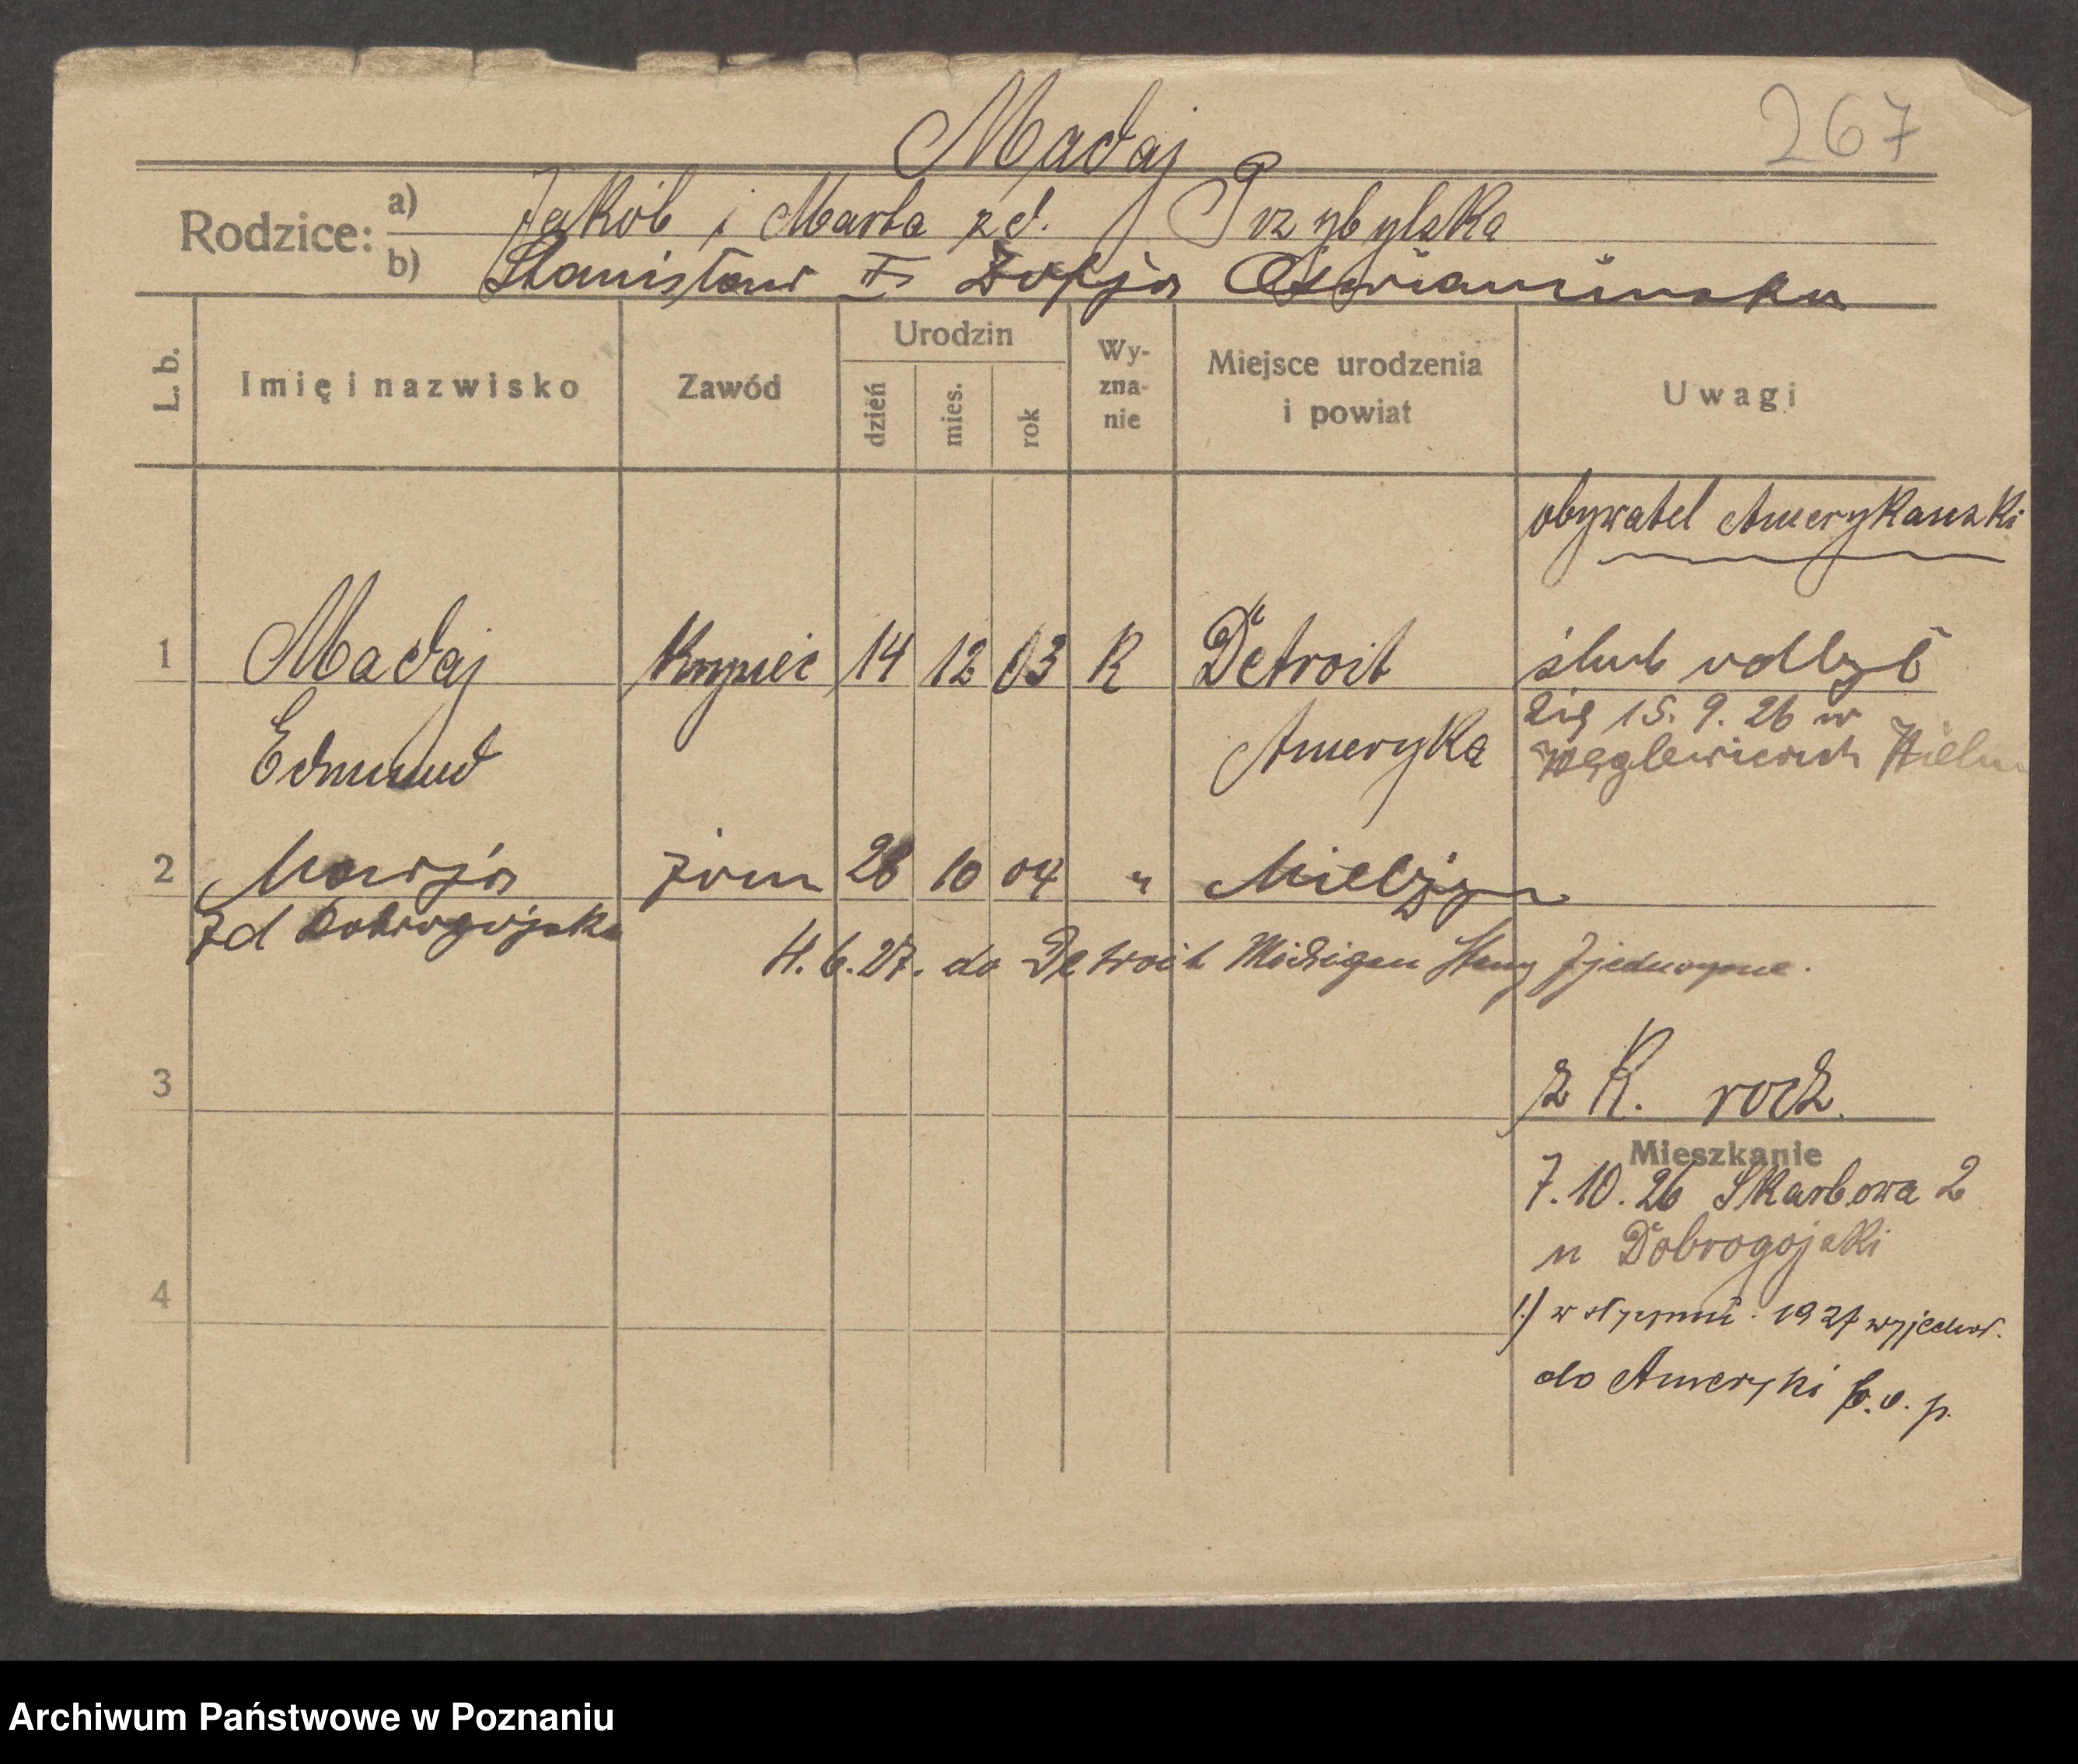 267
Madaj
Rodzice:
a) Jakób i Marta zd. Przybylska
b) Stanisław Zofja
L. b.
Imię i nazwisko
Zawód
Urodzin
dzień
mies.
rok
Wy-
zna-
nie
Miejsce urodzenia
i powiat
Uwagi
obywatel Amerykanski
1 Madaj Kupiec 14 12 03 R Detroit ślub odbył
się 15. 9. 26 w
Edmund Ameryka
2 Marja żona 28 10 04 " Mielżyn
zd Dobrogojska
4. 6. 27. do Detroit Michigan Stany Zjednoczone.
3 z R. rodz.
Mieszkanie
7. 10. 26 Skarbowa 2
u Dobrogojski
1.) w styczniu 1927 wyjechał
4
do Ameryki
Archiwum Państwowe w Poznaniu